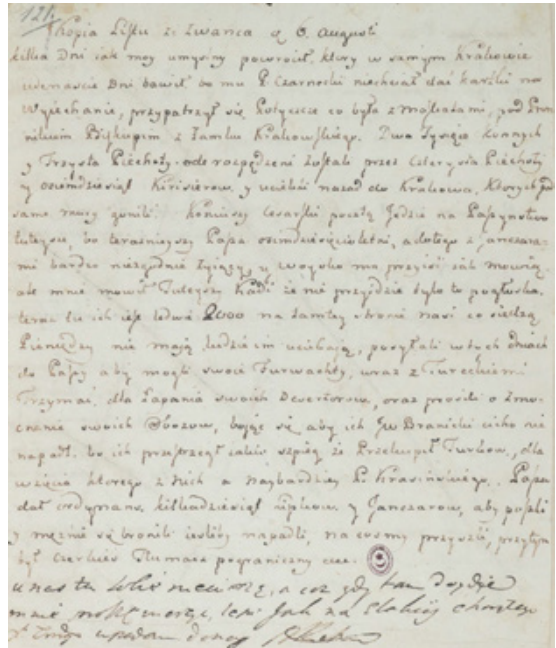 121.
Kopia Listu z Zwanca d. 6. Augusti
kilka Dni jak moy umyslny powrocił, ktory w samym Krakowie
Dni bawił, bo mu P. Czarnocki niechciał dać kartki na
Wyiechanie, przypatrzył się Potyczce co była z Moskalami, pod
Biskupim z Zamku Krakowskiego. Dwa Tysiące konnych
y Trzysta Piechoty rozpędzeni zostali przez Czterysta Piechoty
y ośmdziesiąt Kirisierow, y uciekli nazad do Krakowa, ktorych pod
same mury gonili. Koniuszy Cesarski pocztą Jedzie na
tuteysze, bo teraznieyszy Pasza osmdziesięcioletni, a dotego z Janczara-
mi bardzo niezgodnie żyiący, y woysko ma przyiść jak mowią,
ale mnie mowił Tuteyszy Kadi że nie przyidzie tylko to pogłoska,
teraz tu ich iest ledwie 2000 na tamtey stronie nasi co siedzą
Pieniędzy nie mają, ludzie im uciekają, posyłali wtych dniach
do Paszy aby mogli swoie Furwachty, wraz z Tureckiemi
Trzymać, dla łapania swoich Desertorow, oraz prosili o Zmo-
cnienie swoich Obozow, bojąc się aby ich JW Branicki cicho nie
napadł, bo ich przestrzegł szpieg że Przekupił Turkow, dla
wzięcia ktorego z Nich a naybardziey P. Krasińskiego. Pasza
dał ordynans, kilkadziesiąt y Janczarow, aby poszli
y mężnie się bronili iesliby napadli, na przyszli, przytym
był Czerkies Tłumacz pograniczny
u nas tu nic, a coz gdy tam doydzie
mnie, iak na słabość
upadam do nog